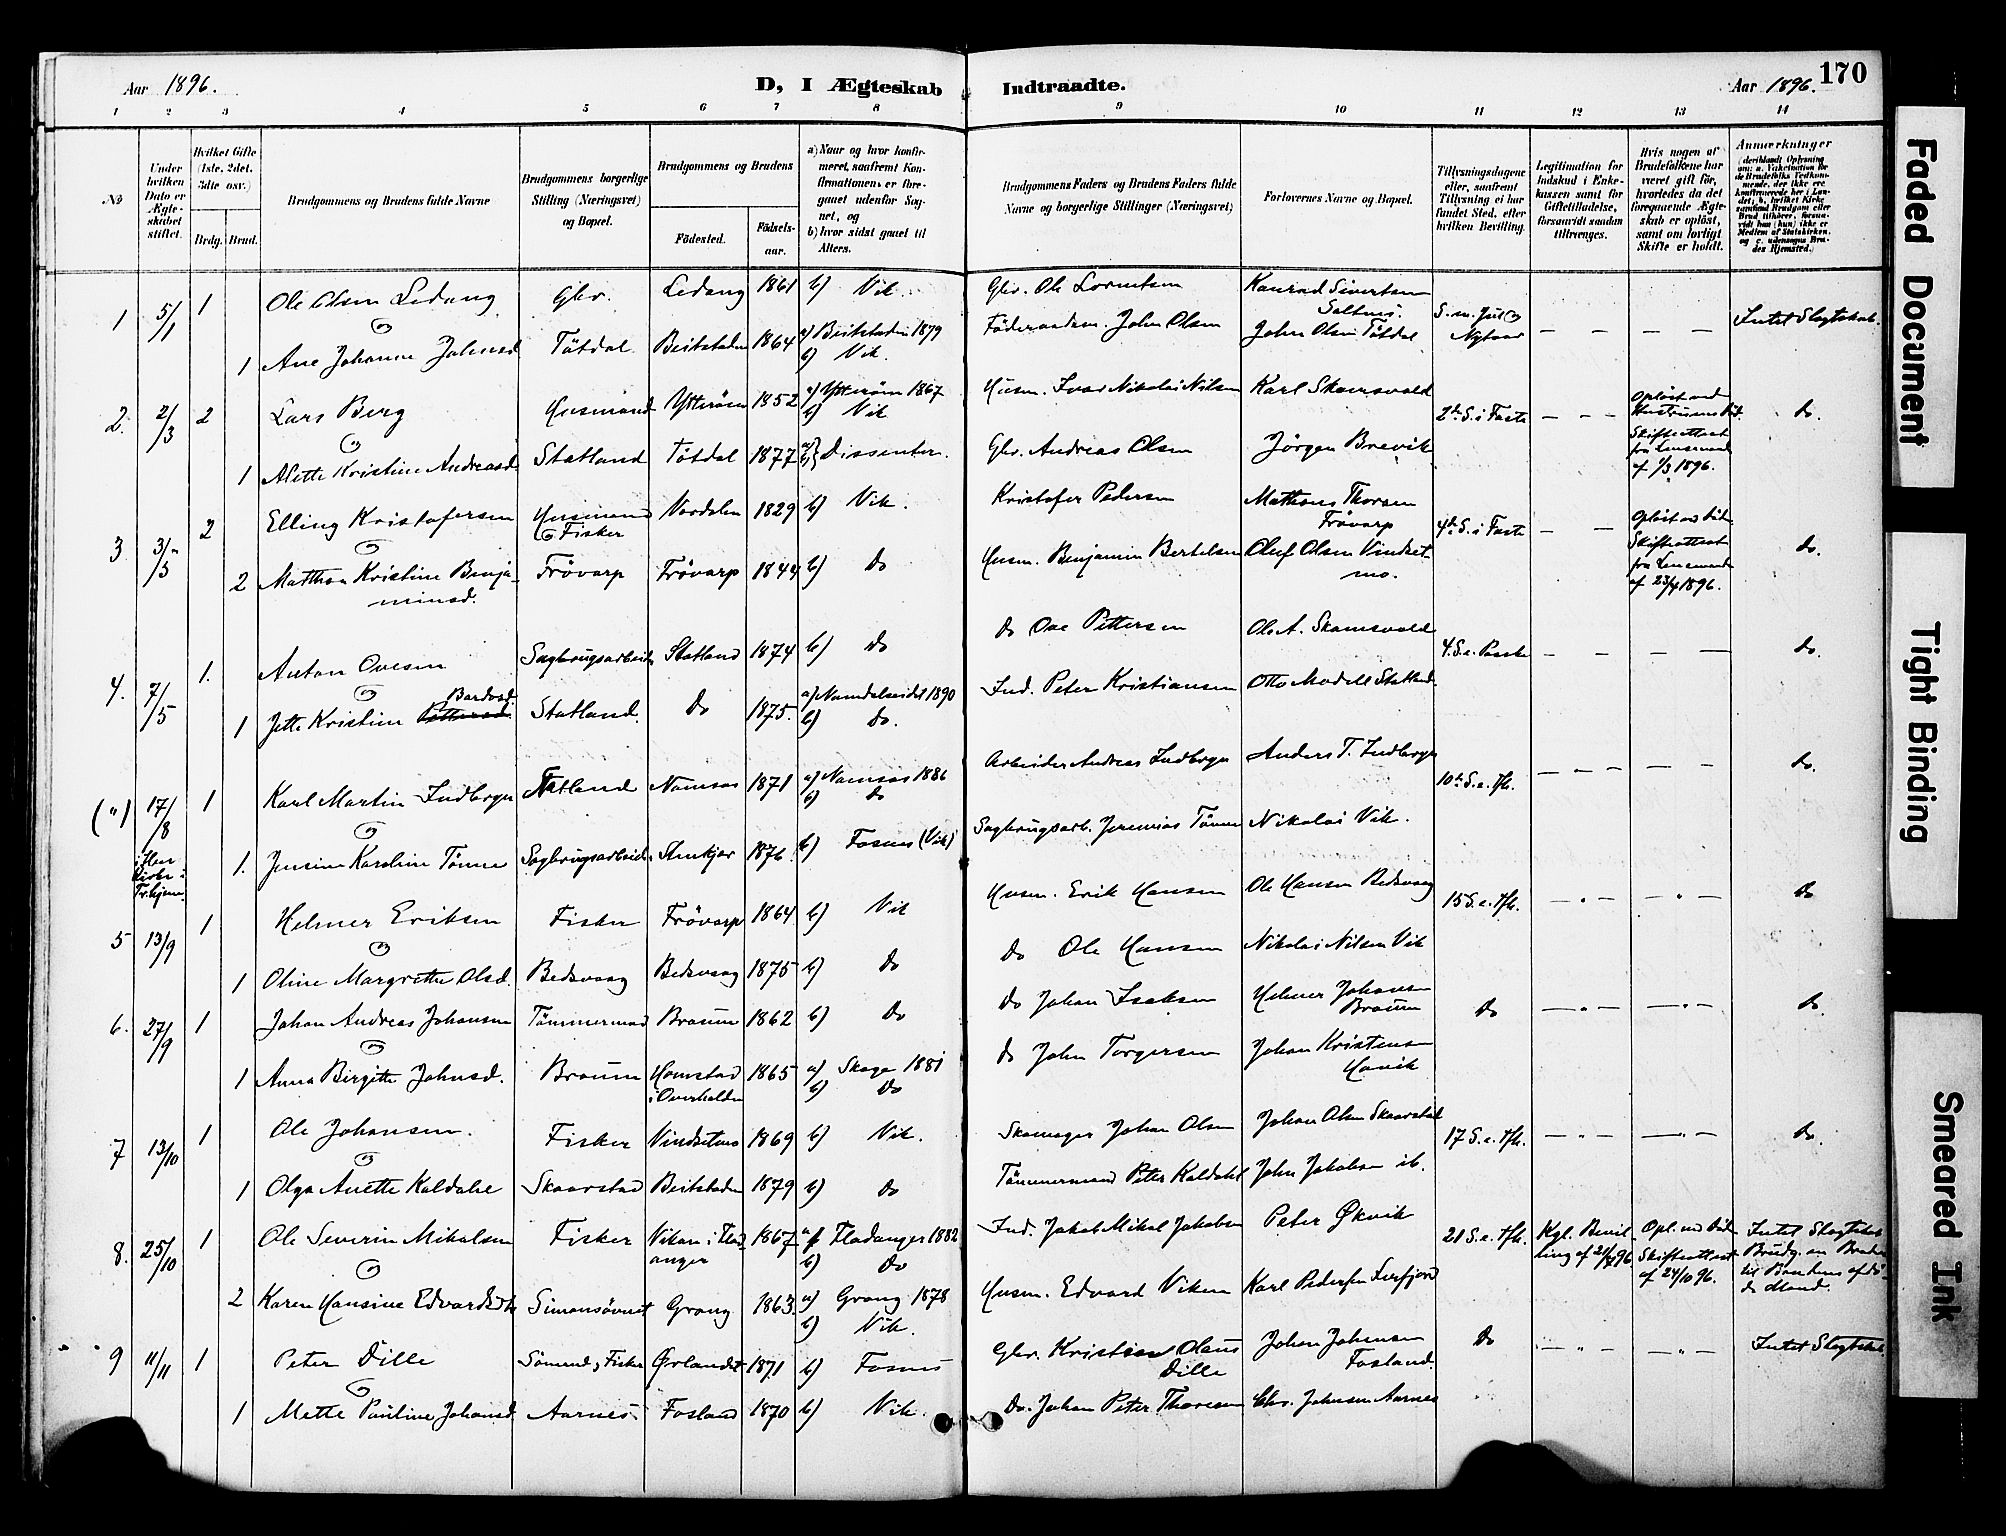 Aar 1896.
D, I Ægteskab Indtraadte.
Aar 1896. 170
1 2 3 4 5 6 7 8 9 10 11 12 13 14
No
Under hvilken Dato er Ægteskabet stiftet.
Hvilket Gifte (1ste, 2det, 3die osv.)
Brdg. Brud.
Brudgommens og Brudens fulde Navne
Brudgommens borgerlige Stilling (Næringsvei) og Bopæl.
Brudgommens og Brudens
Fødested. Fødselsaar.
a) Naar og hvor konfirmeret, saafremt Konfirmationen er foregaaet udenfor Sognet, og
b) hvor sidst gaaet til Alters.
Brudgommens Faders og Brudens Faders fulde Navne og borgerlige Stillinger (Næringsvei)
Forlovernes Navne og Bopæl.
Tillysningsdagene eller, saafremt Tillysning ei har fundet Sted, efter hvilken Bevilling.
Legitimation for Indskud i Enkekassen samt for Giftetilladelse, forsaavidt saadan tiltrænges.
Hvis nogen af Brudefolkene har været gift før, hvorledes da det foregaaende Ægteskab er opløst, samt om lovligt Skifte er holdt.
Anmærkninger
1 5/1 1 Ole Olsen Ledang Gbr. Ledang 1861 b) Vik. Gbr. Ole Lorentsen Konrad Sivertsen Saltnes. S. m. Jul og Nytaar — — — — Intet Slegtskab.
1 Ane Johanna Johnsd Tøtdal Beitstaden 1864 a) Beitstaden 1879 b) Vik. Føderaadsm. John Olsen John Olsen Tøtdal
2. 2/3 2 Lars Berg Husmand Ytterøen 1852 a) Ytterøen 1867 b) Vik Husm. Ivar Nikolai Nilsen Karl Skamsvold 2den S. i Faste — — — Opløst ved Hustruens Død. Skifteattest fra Lensmand af 1/3 1896. do.
1 Alette Kristine Andreasd Statland Tøtdal 1877 a) b) Dissenter. Gbr. Andreas Olsen Jørgen Brevik
3 3/5 2 Elling Kristofersen Husmand & Fisker Værdalen 1829 b) Vik. Kristofer Pedersen Mathias Thorsen Frøvarp 4de S. i Faste — — Opløst ved Død. Skifteattest fra Lensmand af 23/4 1896. do.
2 Matthea Kristine Benjaminsd. Frøvarp Frøvarp 1844 b) do Husm. Benjamin Bertelsen Oluf Olsen Vindsetmo.
4. 7/5 1. Anton Ovesen Sagbrugsarbeider Statland 1874 b) do do Ove Pettersen Ole A. Skamsvold 4. S. e. Paaske — — — — do.
1 Jette Kristine Pettersd. Bardosd. Statland. do 1875. a) Namdalseidet 1890 b) do. Ind. Peter Kristiansen Otto Modell Statland.
(") 17/8 1 Karl Martin Indbergn Statland Namsos 1871 a) Namsos 1886 b) do Arbeider Andreas Indbergn Anders T. Indbergn 10de S. e. Tfh. — " — — — do.
i Ilen Kirke i Tr.hjem. 1. Jensine Karoline Tønne Sagbrugsarbeid. Stenkjær 1876 b) Fosnes (Vik) Sagbrugsarb. Jeremias Tønne Nikolai Vik.
5 13/9 1 Helmer Eriksen Fisker Frøvarp 1864 b) Vik Husm. Erik Hansen Ole Hansen Bedsvaag 15 S. e. Tfh. — " — — " — do
1 Oline Margrethe Olsd. Bedsvaag Bedsvaag 1875 b) do do Ole Hansen Nikolai Nilsen Vik
6. 27/9 1 Johan Andreas Johansen Tømmermand Braum 1862 b) do do Johan Isaksen Helmer Johansen Braum do — " — — " — do.
1 Anna Birgitte Johnsd. Braum Homstad i Overhalden 1865 a) Skage 1881 b) do do John Torgersen Johan Kristensen Havik
7 13/10 1 Ole Johansen. Fisker Vindsetmo 1869 b) Vik. Skomager Johan Olsen Johan Olsen Skaarstad 17 S. e. Tfh. — " — — " — do.
1 Olga Anette Kaldahl Skaarstad Beitstaden 1879 b) do Tømmermand Peter Kaldahl John Jakobsen ib.
8. 25/10 1 Ole Severin Mikalsen Fisker Vikan i Fladanger 1867 a) Fladanger 1882 b) do Ind. Jakob Mikal Jakobsen Peter Økvik 21 S. e. Tfh. Kgl. Bevilling af 21/9 96 Opl. ved Død Skifteattest af 24/10 96. Intet Slegtskab Brudg. en Broder til Brudens afdøde Mand.
2 Karen Hansine Edvardsdtr Simonsøvnet Grong 1863. a) Grong 1878 b) Vik. Husm. Edvard Viken Karl Pedersen Lerfjord
9 11/11 1 Peter Dille Sømand, Fisker Ørlandet 1871 b) Fosnes Gbr. Kristian Olaus Dille Johan Johansen Fosland. do — " — — " — Intet Slegtskab.
1 Mette Pauline Johansd. Aarnes. Fosland 1870 b) Vik. do. Johan Peter Thoresen Chr. Johnsen Aarnes
Faded Document
Tight Binding
Smeared Ink